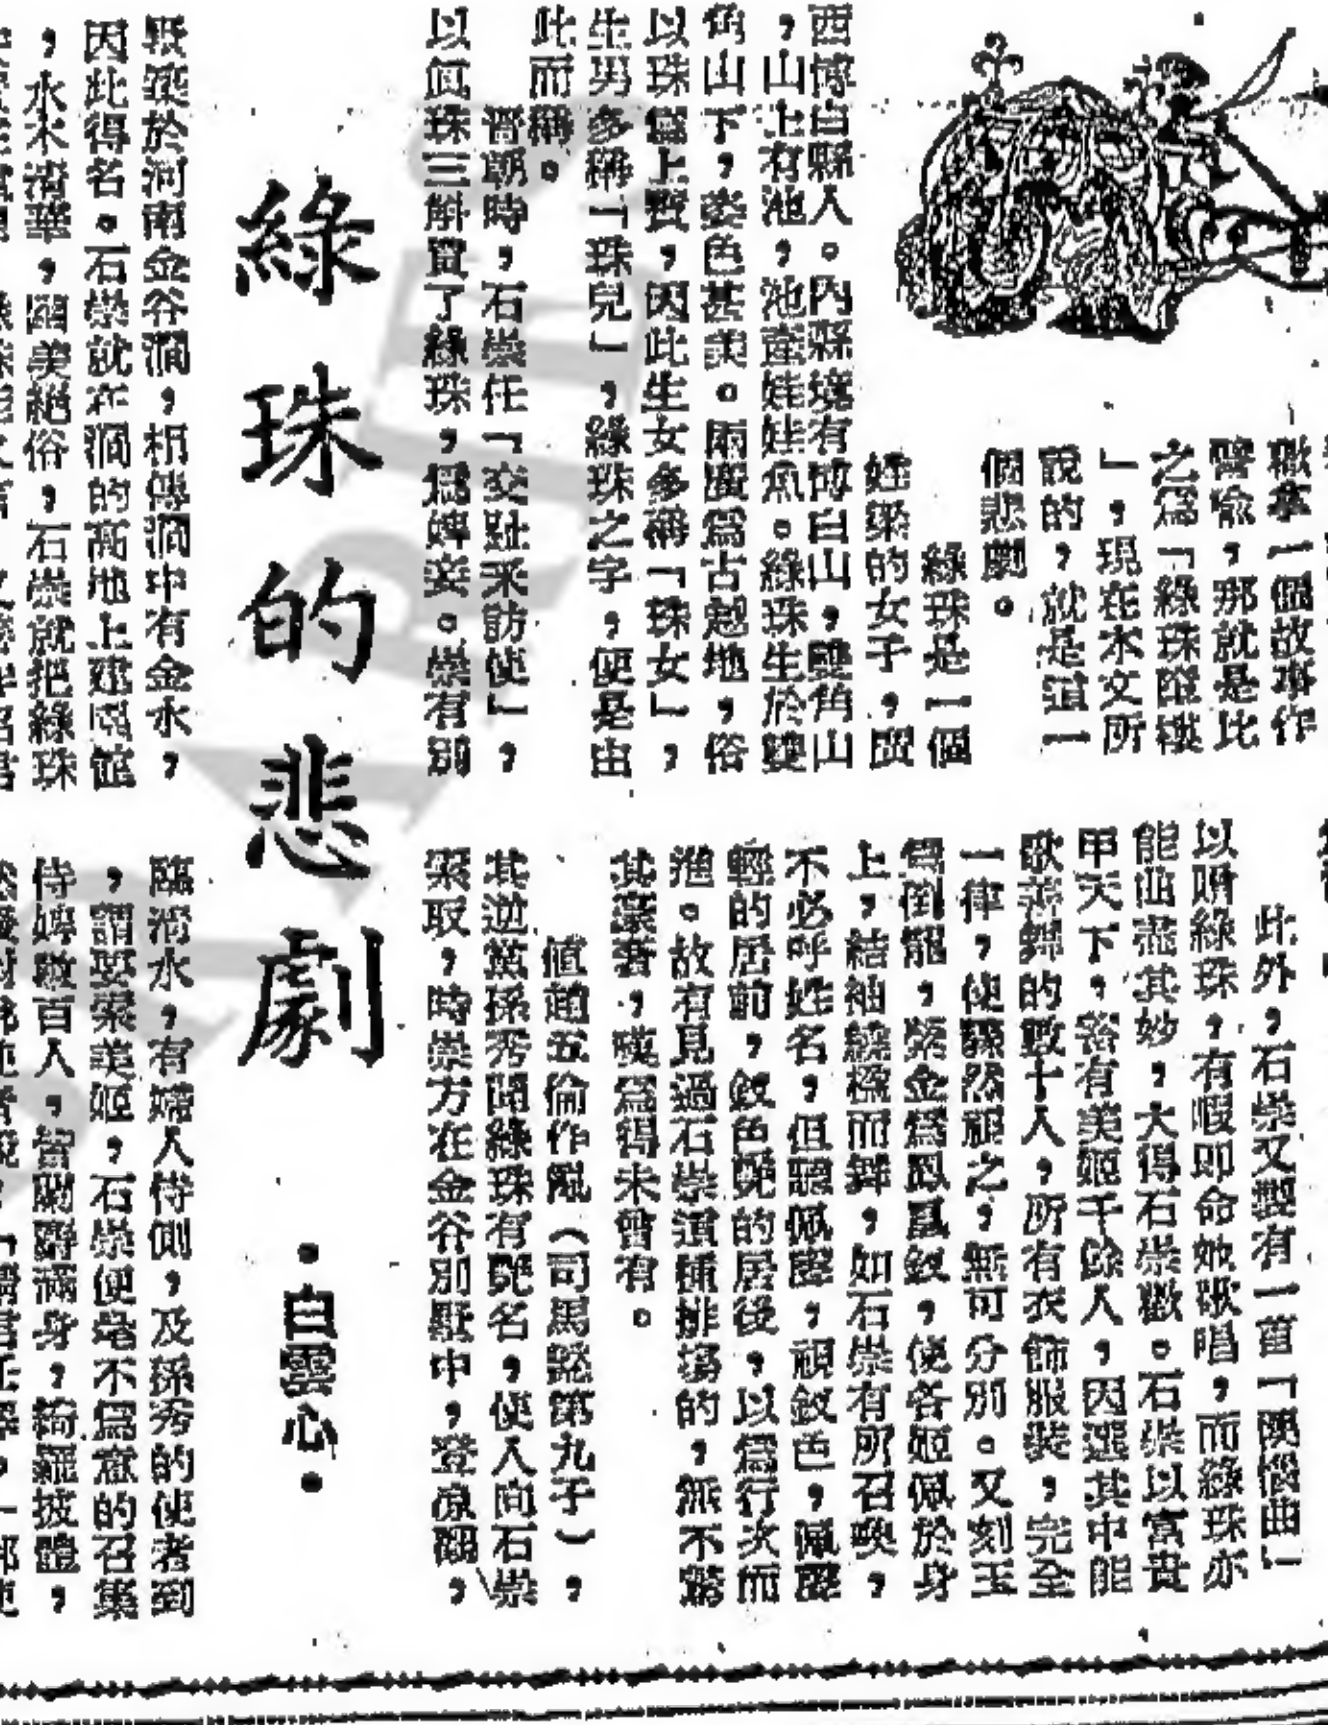 綠珠的悲劇
•白雲心•
徽拿一個故事作
譬喻，那就是比
之爲「綠珠墜樓
」，現在本文所
說的，就是這一
個悲劇。
綠珠是一個
姓梁的女子，廣
西博白縣人。內縣境有博白山，雙角山
，山上有池，池產娃娃魚。綠珠生於雙
角山下，姿色甚美。兩廣爲古越地，俗
以珠爲上寶，因此生女多稱「珠女」，
生男多稱「珠兒」，綠珠之字，便是由
此而稱。
晋朝時，石崇任「交趾采訪使」，
以眞珠三斛買了綠珠，爲婢妾。崇有別
墅築於河南金谷澗，相傳澗中有金水，
因此得名。石崇就在澗的高地上建園館
，水木清華，園美絕俗，石崇就把綠珠
此外，石崇又製有一首「懊惱曲」
以贈綠珠，有暇即命她歌唱，而綠珠亦
能曲盡其妙，大得石崇歡。石崇以富貴
甲天下，蓄有美姬千餘人，因選其中能
歌善舞的數十人，所有衣飾服裝，完全
一律，使驟然視之，無可分別。又刻玉
爲倒龍，縈金爲鳳凰釵，使各姬佩於身
上，結袖繞楹而舞，如石崇有所召喚，
不必呼姓名，但聽佩聲，視釵色，佩聲
輕的居前，釵色艷的居後，以爲行次而
進。故有見過石崇這種排場的，無不驚
其豪奢，嘆爲得未曾有。
值趙五倫作亂（司馬懿第九子），
其逆黨孫秀聞綠珠有艷名，使人向石崇
索取，時崇方在金谷別墅中，登凉觀，
臨清水，有婦人侍側，及孫秀的使者到
，謂要索美姬，石崇便毫不爲意的召集
侍婢數百人，皆蘭麝滿身，綺羅披體，